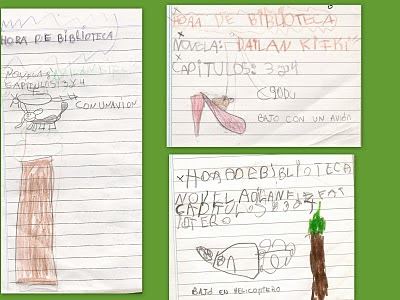 HORA DE BIBLIOTECA
NOVELA: DAILAN KIFKI
CAPITULOS: 3 Y 4
CON UN AVION
HORA DE BIBLIOTECA
NOVELA: DAILAN KIFKI
CAPITULOS: 3 Y 4
BAJO CON UN AVIÓN
HORA DE BIBLIOTECA
NOVELA
CAPITULOS 3
BAJO EN HELICOPTERO